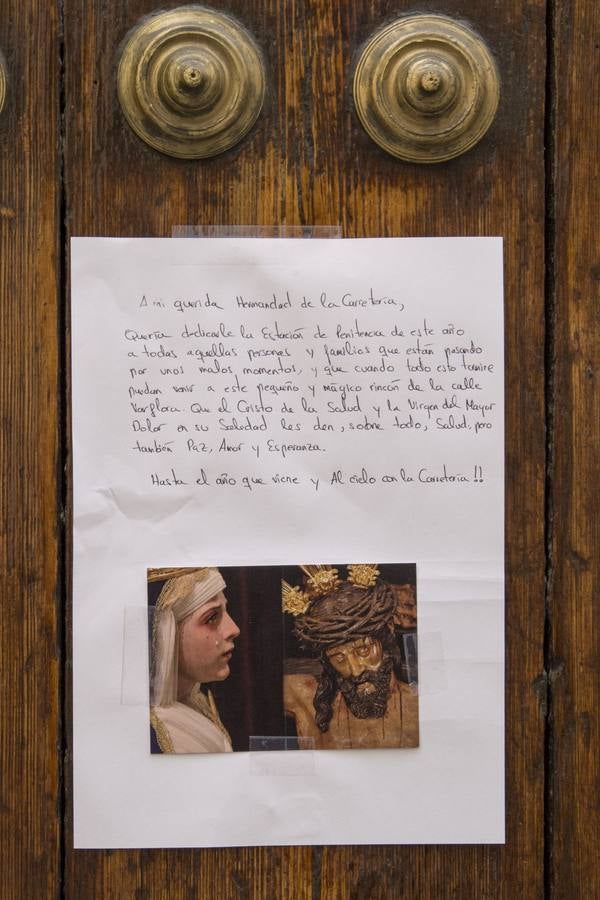 A mi querida Hermandad de la Carretería,
Quería dedicarle la Estación de Penitencia de este año
a todas aquellas personas y familias que están pasando
por unos malos momentos, y que cuando todo esto termine
puedan venir a este pequeño y mágico rincón de la calle
Varflora. Que el Cristo de la Salud y la Virgen del Mayor
Dolor en su Soledad les den, sobre todo, Salud, pero
también Paz, Amor y Esperanza.
Hasta el año que viene y Al cielo con la Carretería!!